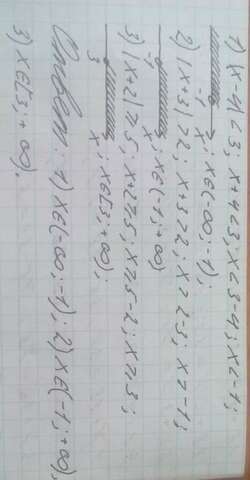 1) |x-4| < 3; x+4<3; x<3-4; x<-1;
-1 x; x∈(-∞; -1);
2) |x+3| > 2; x+3>2; x>2-3; x>-1;
-1 x; x∈(-1; +∞)
3) |x+2| ≥ 5; x+2≥5; x≥5-2; x≥3;
3 x; x∈[3; +∞);
Ответ: 1) x∈(-∞; -1); 2) x∈(-1; +∞);
3) x∈[3; +∞).